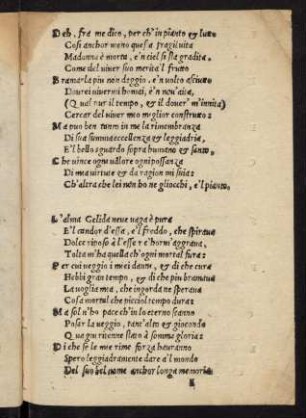 Deh, fra me dico, per ch'in pianto & lutto
Cosi anchor meno questa fragil uita
Madonna è morta, e'n ciel se sta gradita,
Come del uiuer suo merita'l frutto
Bramarla piu non deggio, e'n uolto asciutto
Dourei uiuermi homai, e'n neu'aita,
(Qual uur il tempo, & il douer m'inuita)
Cercar del uiuer mio miglior construtto:
Ma puo ben tanto in me la rimembranza
Di sua summa eccellenza & leggiadria,
E'l bello sguardo sopra humano & santo,
Che uince ogni ualore ogni possanza
Di mia uirtute & da ragion mi suia:
Ch'altra che lei non ho ne gliocchi, e'l pianto.
L'alma Celida neue uaga è pura
E'l candor d'essa, e'l freddo, che spiraua
Dolce riposo à l'esser e'hom'aggraua,
Tolta m'ha quella ch'ogni mortal fura:
Per cui ueggio i miei danni, & di che cura
Hebbi gran tempo, & di che piu bramaua
La uoglia mea, che ingorda ne speraua
Cosa mortal che picciol tempo dura:
Ma sol n'ho pace ch'in lo eterno scanno
Posar la ueggio, tant'alm & gioconda
Qua giu riuenne stato à somma gloria:
Di che se le mie rime forza hauranno
Spero leggiadramente dare a'l mondo
Del suo bel nome anchor longa memoria